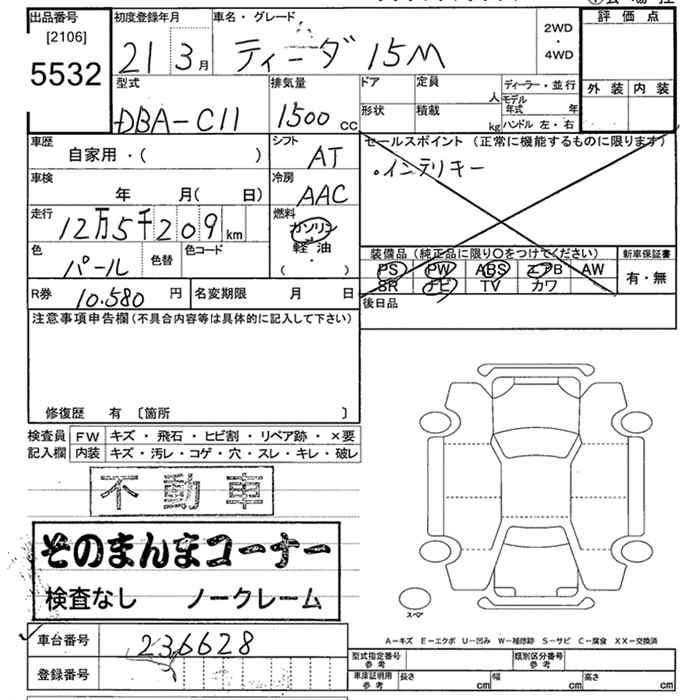 出品番号
[2106]
5532
初度登録年月
21 3月
車名・グレード
ティーダ 15M
2WD
・
4WD
評価点
外装 内装
型式
DBA-C11
排気量
1500 cc
ドア
定員
人
形状
積載
kg
ディーラー・並行
モデル年式 年
ハンドル 左・右
車歴
自家用・( )
シフト
AT
セールスポイント (正常に機能するものに限ります)
・インテリキー
車検
年 月( 日)
冷房
AAC
走行
12万5千209km
燃料
ガソリン
軽油
( ・ )
色
パール
色替
色コード
装備品 (純正品に限り〇をつけてください)
PS PW ABS エアB AW
SR ナビ TV カワ
新車保証書
有・無
R券 10.580 円
名変期限 月 日
後日品
注意事項申告欄(不具合内容等は具体的に記入して下さい)
修復歴 有 〔箇所 〕
検査員
記入欄
FW キズ・飛石・ヒビ割・リペア跡・×要
内装 キズ・汚レ・コゲ・穴・スレ・キレ・破レ
不動車
そのまんまコーナー
検査なし ノークレーム
スペア
A-キズ E-エクボ U-凹み W-補修跡 S-サビ C-腐食 XX-交換済
車台番号 236628
登録番号
型式指定番号
参考
類別区分番号
参考
車庫証明用
参考
長さ cm
幅 cm
高さ cm